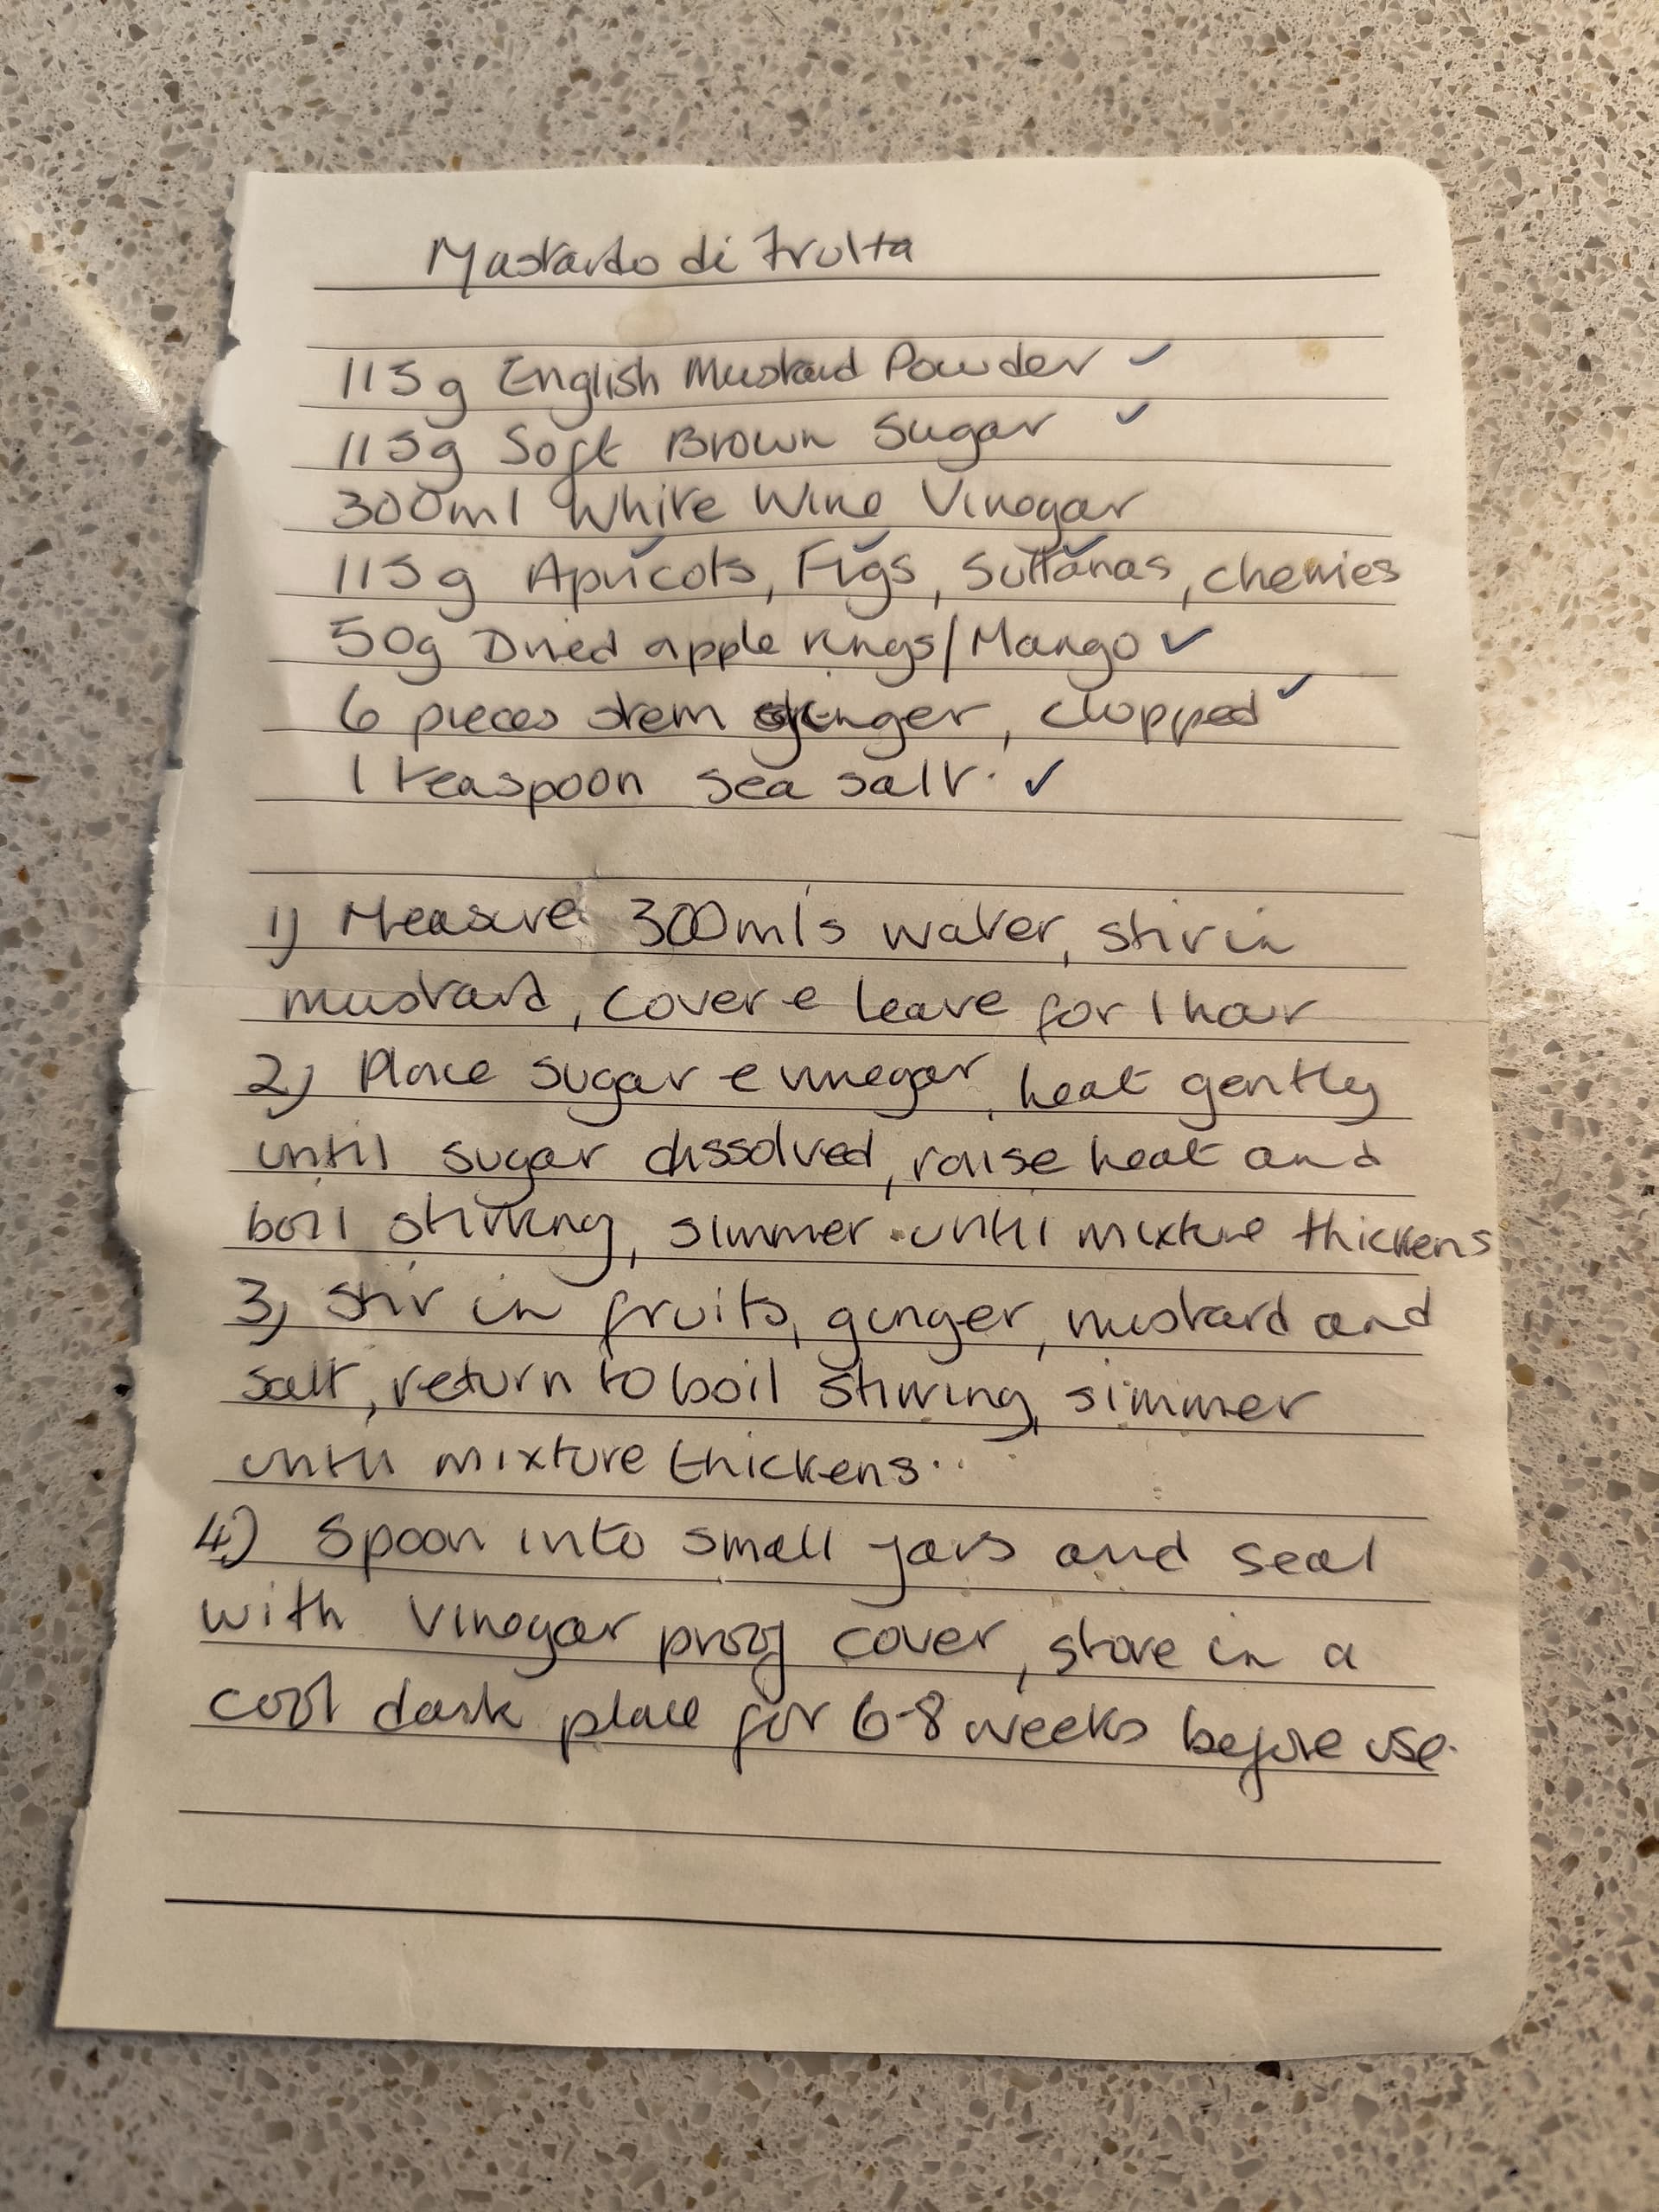 Mustardo di Frutta
115g English Mustard Powder ✓
115g Soft Brown Sugar ✓
300ml White Wine Vinegar
115g Apricots, Figs, Sultanas, cherries
50g Dried apple rings/Mango ✓
6 pieces stem ginger, chopped ✓
1 teaspoon sea salt. ✓
1) Measure 300ml's water, stir in
mustard, cover & leave for 1 hour
2) Place sugar & vinegar, heat gently
until sugar dissolved, raise heat and
boil stirring, simmer until mixture thickens
3) Stir in fruits, ginger, mustard and
salt, return to boil stirring, simmer
until mixture thickens..
4) Spoon into small jars and seal
with vinegar proof cover, store in a
cool dark place for 6-8 weeks before use.